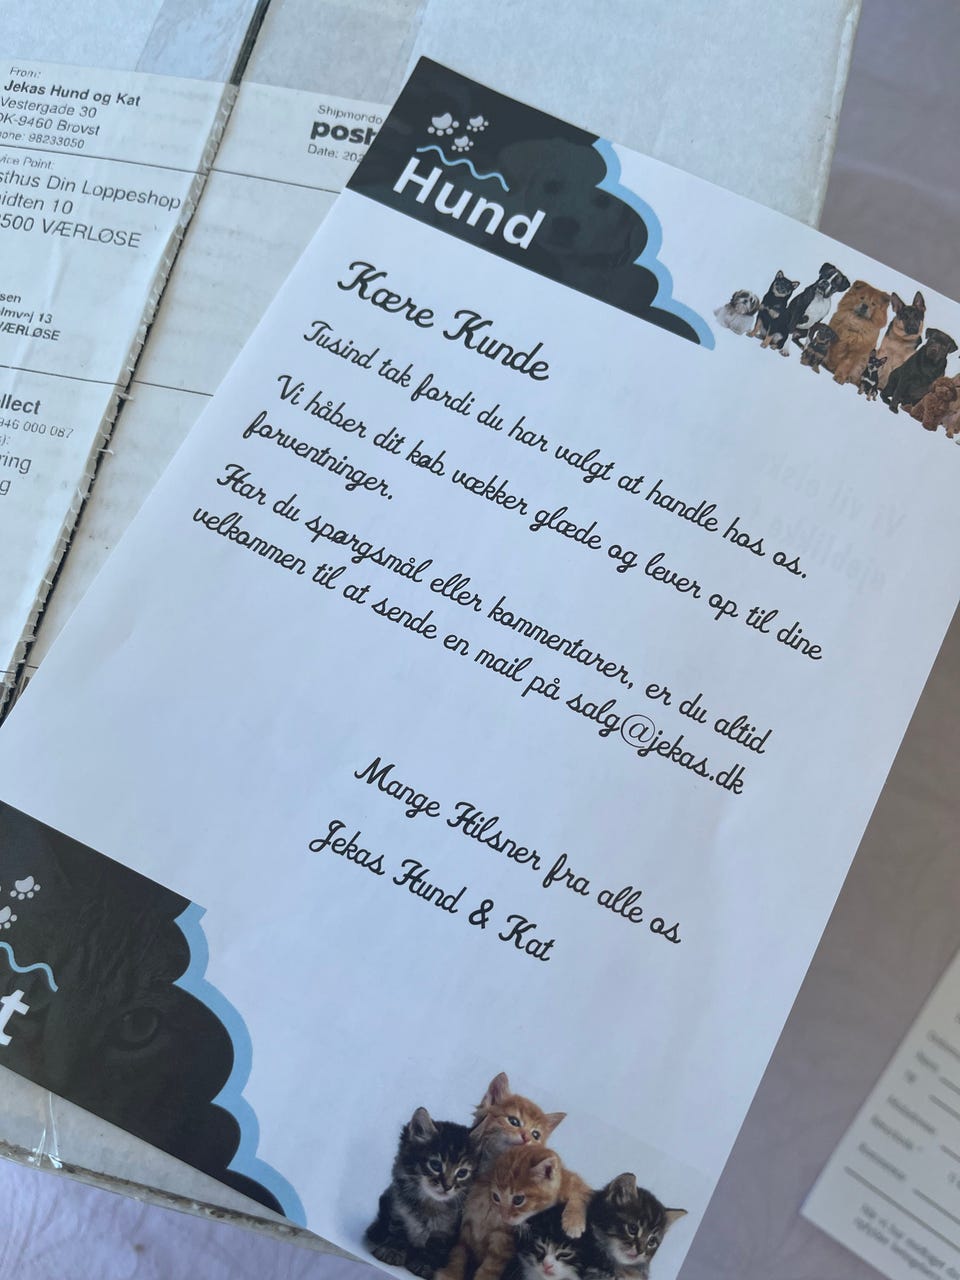 From:
Jekas Hund og Kat
Vestergade 30
DK-9460 Brovst
98233050
Point:
Din Loppeshop
10
3500 VÆRLØSE
13
VÆRLØSE
946 000 087
Shipmondo
Date:
Hund
Kære Kunde
Tusind tak fordi du har valgt at handle hos os.
Vi håber dit køb vækker glæde og lever op til dine
forventninger.
Har du spørgsmål eller kommentarer, er du altid
velkommen til at sende en mail på salg@jekas.dk
Mange Hilsner fra alle os
Jekas Hund & Kat